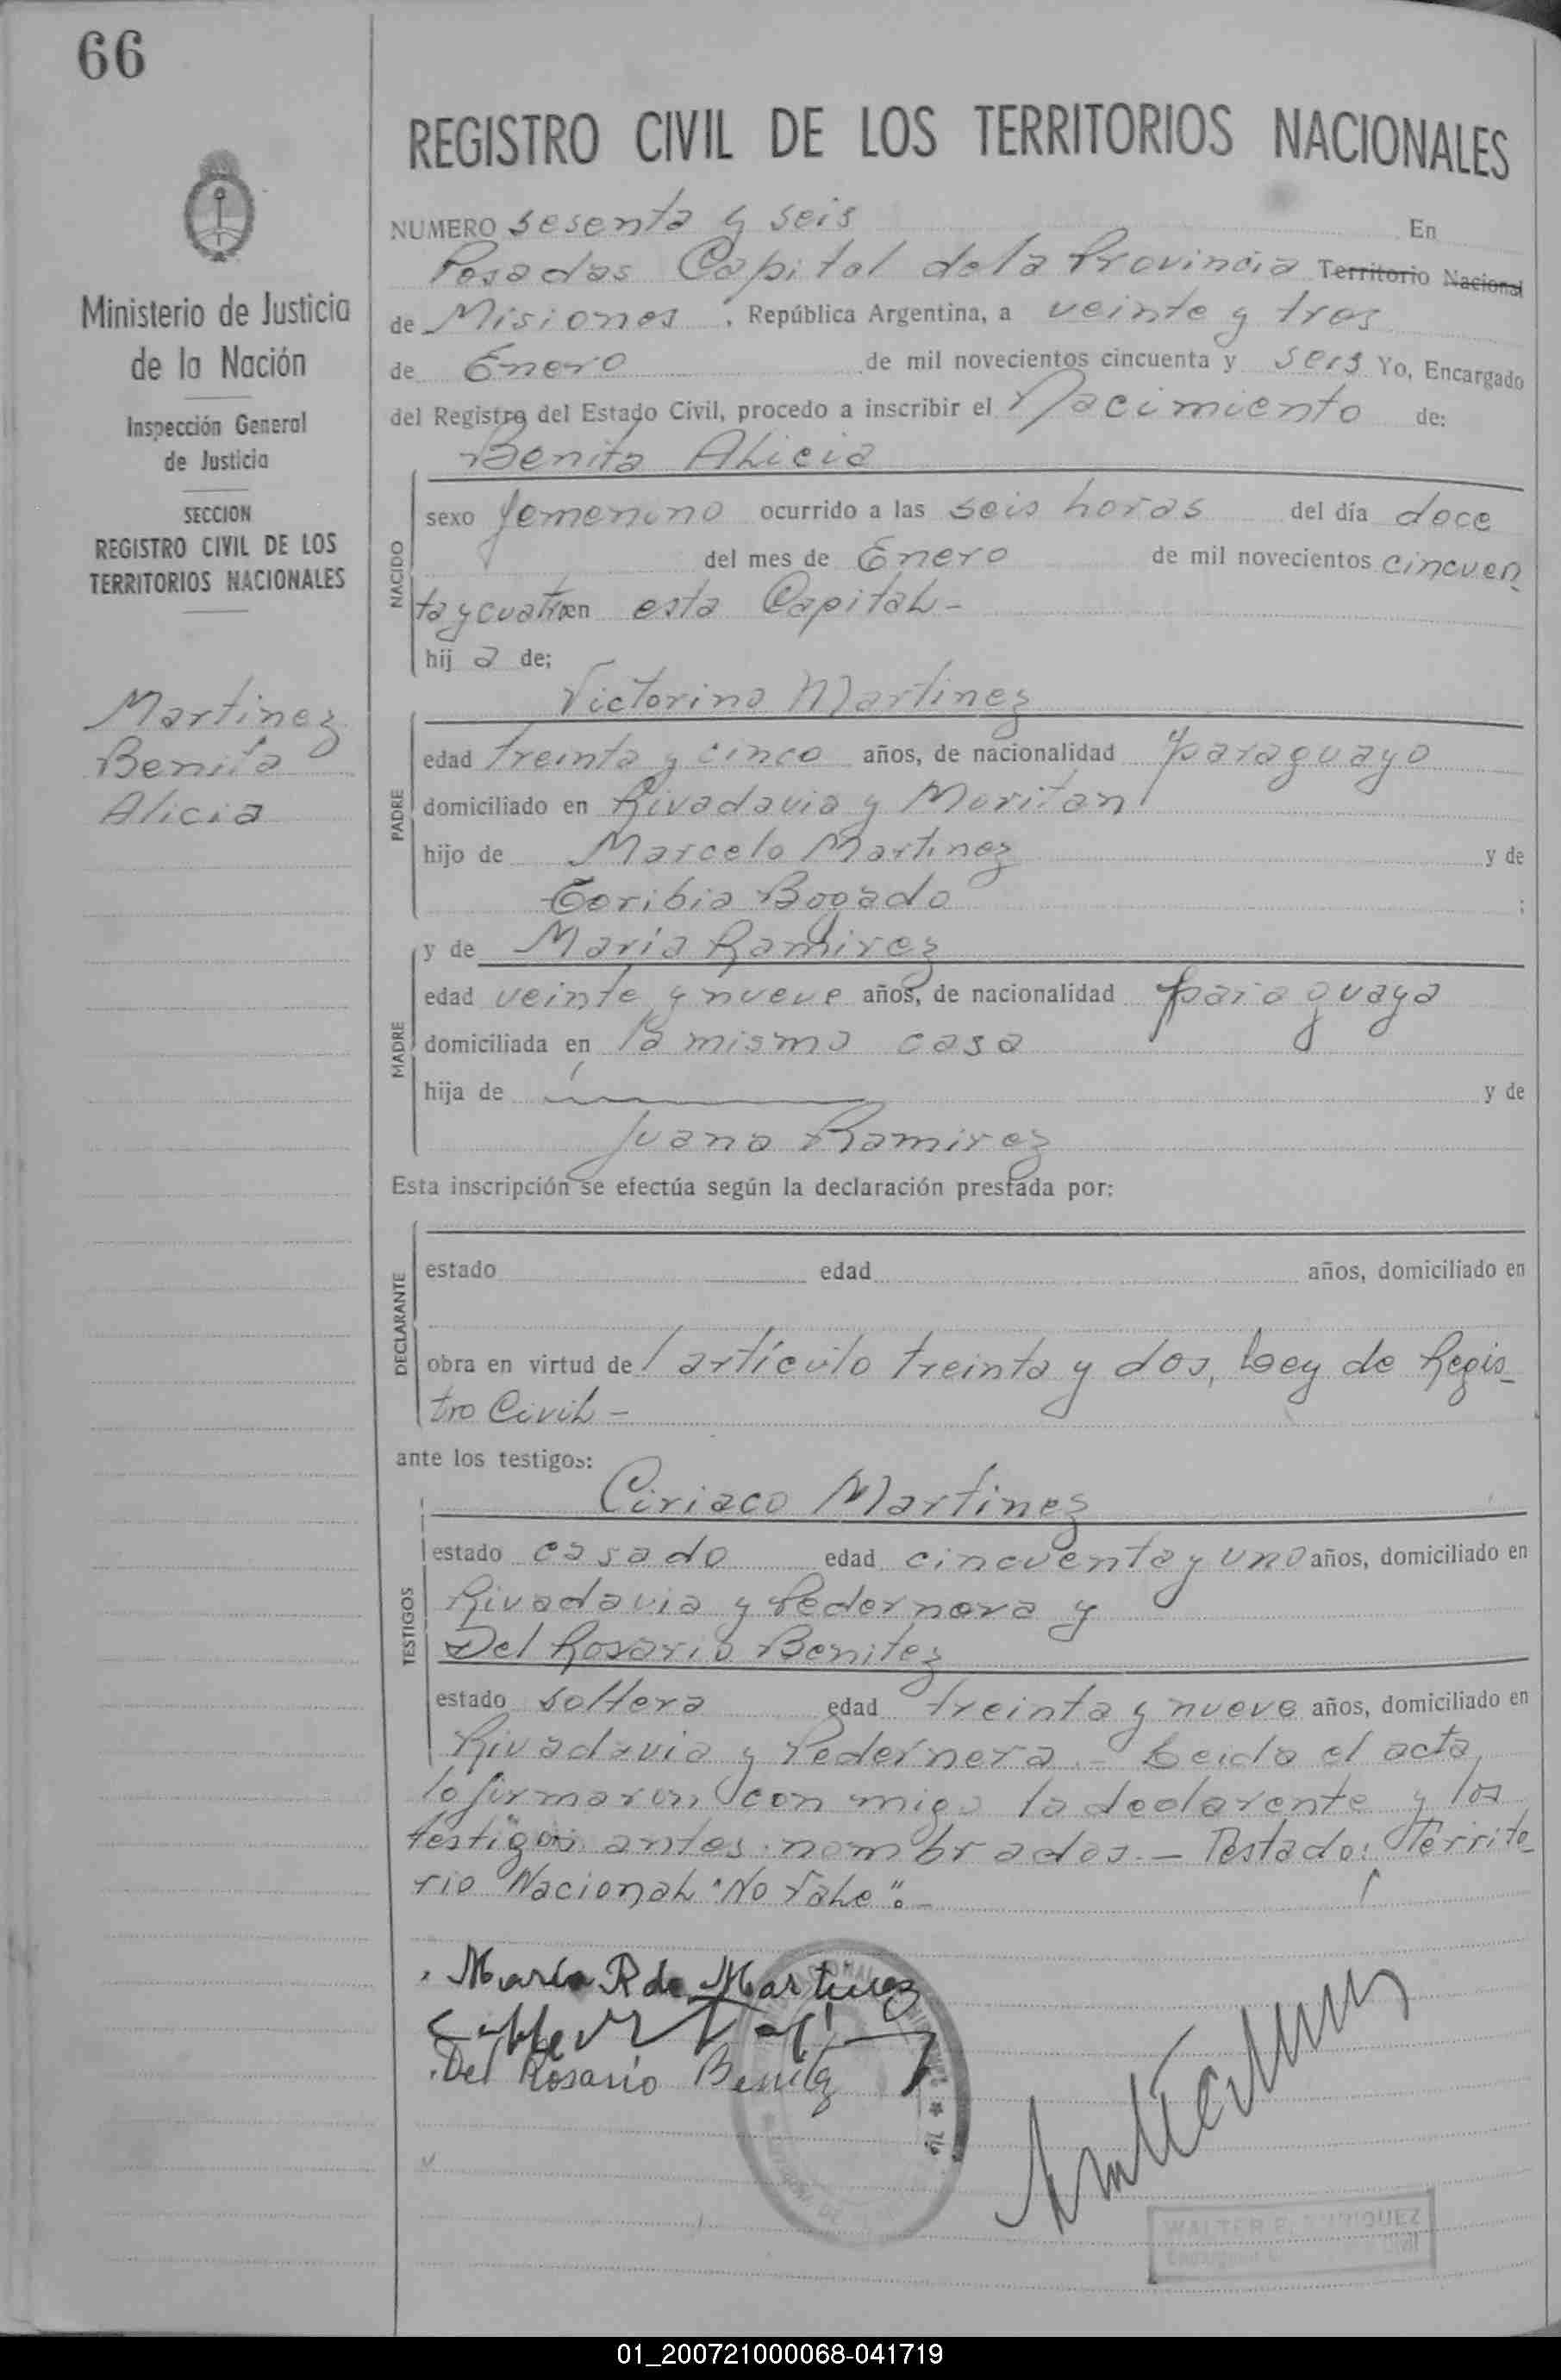 66
REGISTRO CIVIL DE LOS TERRITORIOS NACIONALES
NUMERO sesenta y seis En
Posadas Capital de la Provincia Territorio Nacional
de Misiones, República Argentina, a veinte y tres
de Enero de mil novecientos cincuenta y seis Yo, Encargado
del Registro del Estado Civil, procedo a inscribir el Nacimiento de:
Benita Alicia
NACIDO
sexo femenino ocurrido a las seis horas del día doce
del mes de Enero de mil novecientos cincuen
ta y cuatro en esta Capital-
hij a de;
Victorino Martinez
PADRE
edad treinta y cinco años, de nacionalidad paraguayo
domiciliado en Rivadavia y Moritan
hijo de Marcelo Martinez y de
Toribia Bogado ;
y de Maria Ramirez
MADRE
edad veinte y nueve años, de nacionalidad paraguaya
domiciliada en la misma casa
hija de y de
Juana Ramirez
Esta inscripción se efectúa según la declaración prestada por:
DECLARANTE
estado edad años, domiciliado en
obra en virtud del artículo treinta y dos, Ley de Regis-
tro Civil-
ante los testigos:
Ciriaco Martinez
TESTIGOS
estado casado edad cincuenta y uno años, domiciliado en
Rivadavia y Pedernera y
Del Rosario Benitez
estado soltera edad treinta y nueve años, domiciliado en
Rivadavia y Pedernera.- Leida el acta,
la firmaron con migo la declarente y los
testigos antes nombrados.- Testado: Territo-
rio Nacional "No Vale".-
María R de Martinez
Del Rosario Benitez
WALTER
Ministerio de Justicia
de la Nación
Inspección General
de Justicia
SECCION
REGISTRO CIVIL DE LOS
TERRITORIOS NACIONALES
Martinez
Benita
Alicia
01_200721000068-041719